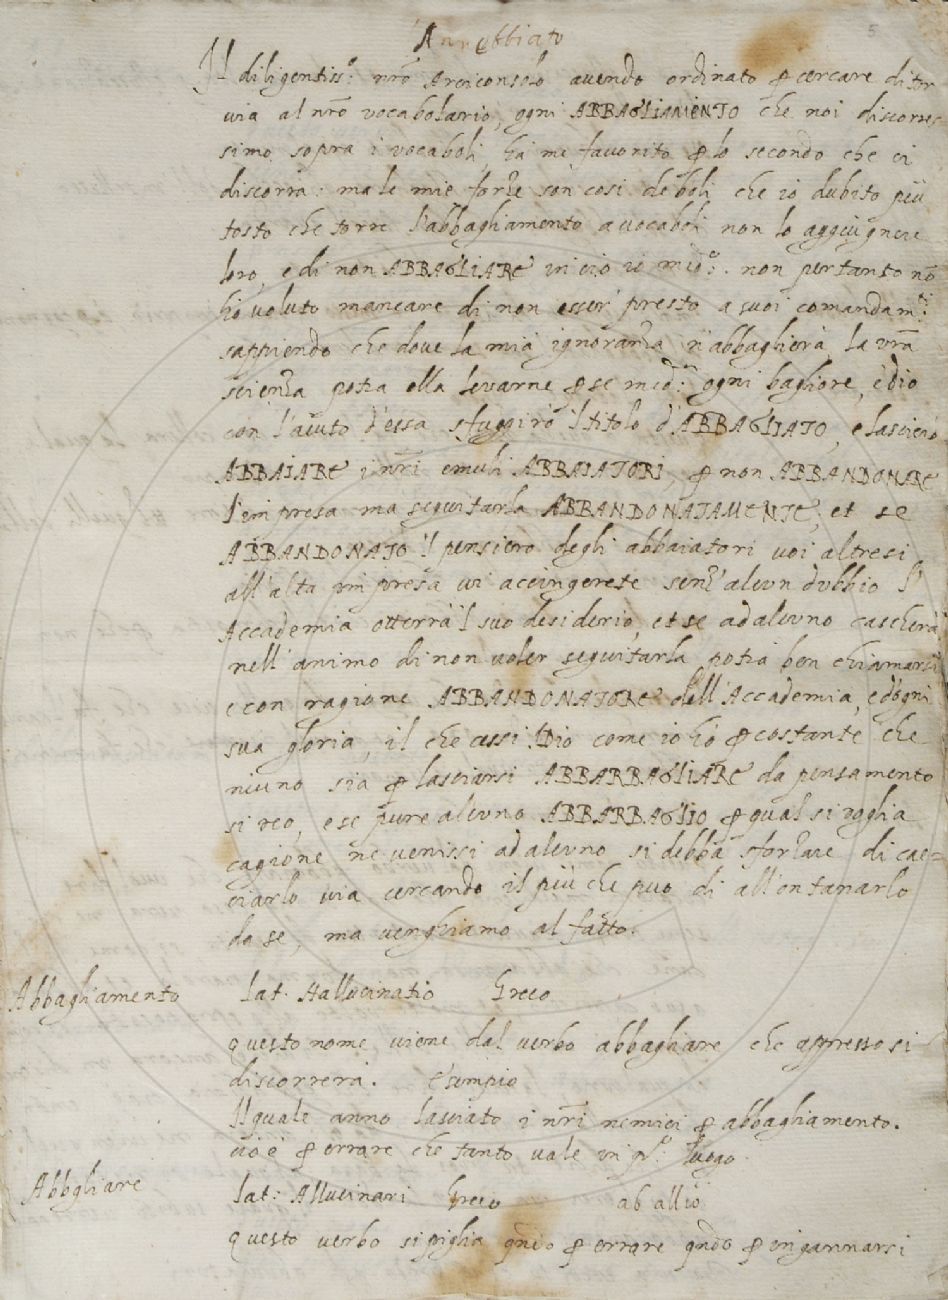 Inrebbiato
5
Il diligentiss.º nr̃o Arciconsolo avendo ordinato p cercare di tor
via al nr̃o vocabolario, ogni ABBAGLIAMENTO che noi discorres
simo sopra i vocaboli, hà me favorito p lo secondo che ci
discorra: ma le mie forze son così deboli che io dubito più
tosto che torre l'abbagliamento a vocaboli non lo aggiugnere
loro, e di non ABBAGLIARE in ciò io med.º. non pertanto nõ
hò voluto mancare di non esser presto a suoi comandam.ti
sappiendo che dove la mia ignoranza n'abbaglierà, la vr̃a
scienza potrà ella levarne p se med.ma ogni bagliore, ed io
con l'aiuto d'essa sfuggirò 'l titolo d'ABBAGLIATO, e lascierò
ABBAIARE i nr̃i emuli ABBAIATORI, p non ABBANDONARE
l'impresa ma seguitarla ABBANDONATAMENTE, et se
ABBANDONATO 'l pensiero degli abbaiatori voi altresi
all'alta impresa vi accingerete senz'alcun dubbio l'
Accademia otterrà 'l suo desiderio, et se ad alcuno cascherà
nell'animo di non voler seguitarla potrà ben chiamarsi
e con ragione ABBANDONATORE dell'Accademia, e d'ogni
sua gloria, il che cessi Dio come io hò p costante che
niuno sia p lasciarsi ABBARBAGLIARE da pensamento
si reo, e se pure alcuno ABBARBAGLIO p qual si voglia
cagione ne venissi ad alcuno si debba sforzare di cac=
ciarlo via cercando il più che può di allontanarlo
da se, ma venghiamo al fatto.
Abbagliamento lat. Hallucinatio Greco
questo nome viene dal verbo abbagliare che appresso si
discorrerà. Esempio
Il quale anno lasciato i nr̃i nemici p abbagliamento.
cio è p errare che tanto vale in p.º luogo.
Abbgliare lat: Allucinari Greco ab allio
questo verbo si piglia qñdo p errare qñdo p ingannarsi